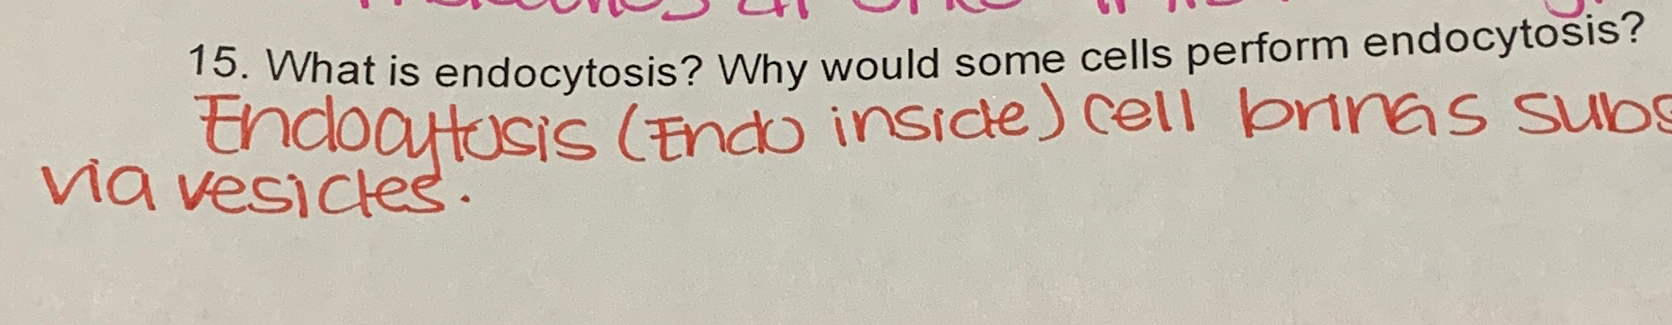 15. What is endocytosis? Why would some cells perform endocytosis?
Endocytosis (Endo inside) cell brings subs
via vesicles.